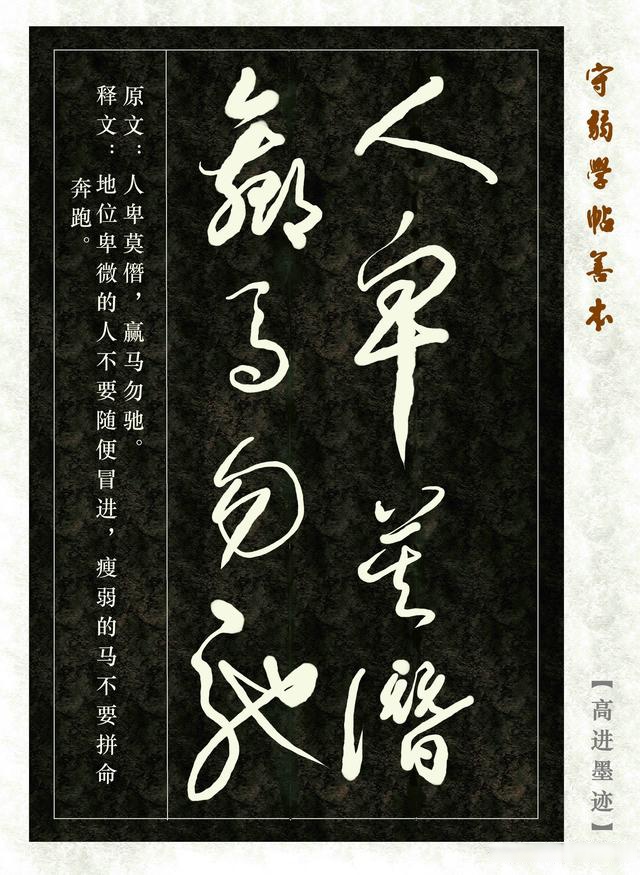 守弱學帖善本
【高进墨迹】
人卑莫僭
赢马勿驰
原文：人卑莫僭，赢马勿驰。
释文：地位卑微的人不要随便冒进，瘦弱的马不要拼命
奔跑。